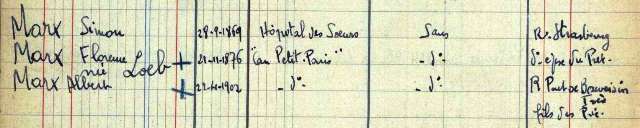 Marx Simon 28-9-1869 Hôpital des Soeurs Sans R. Strasbourg
Marx Florence née Loeb + 21-11-1876 "au Petit-Paris" - d°- d° epse du Préc.
Marx Albert + 22-11-1902 - d°- - d°- R Pont de Beauvoisin
fils des Préc.